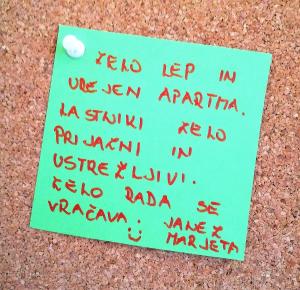 ŽELO LEP IN
UREJEN APARTMA.
LASTNIKI ŽELO
PRIJAZNI IN
USTREŽLJIVI.
ŽELO RADA SE
VRAČAVA. JANEŽ
MARJETA